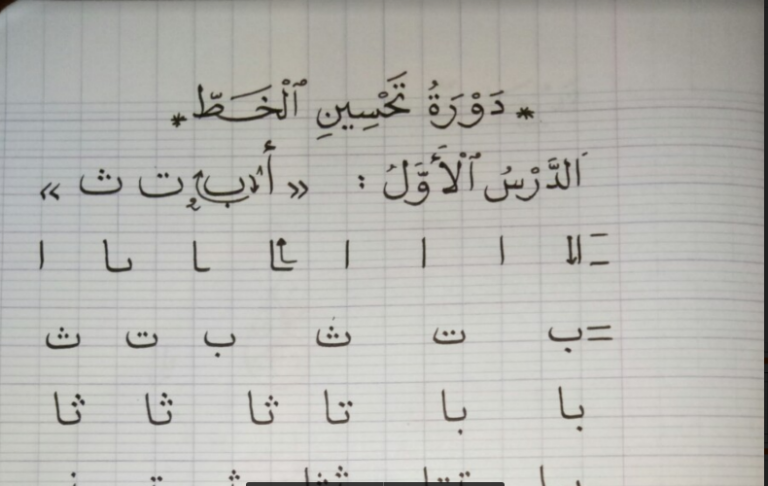 * دَوْرَةُ تَحْسِينِ ٱلْخَطّ *
الدَّرْسُ ٱلْأَوَّلُ : « أ ب ت ث »
ا ا ا ا ل ـا ىا ا
ب ت ث ب ت ث
با با تا ثا ثا ثا